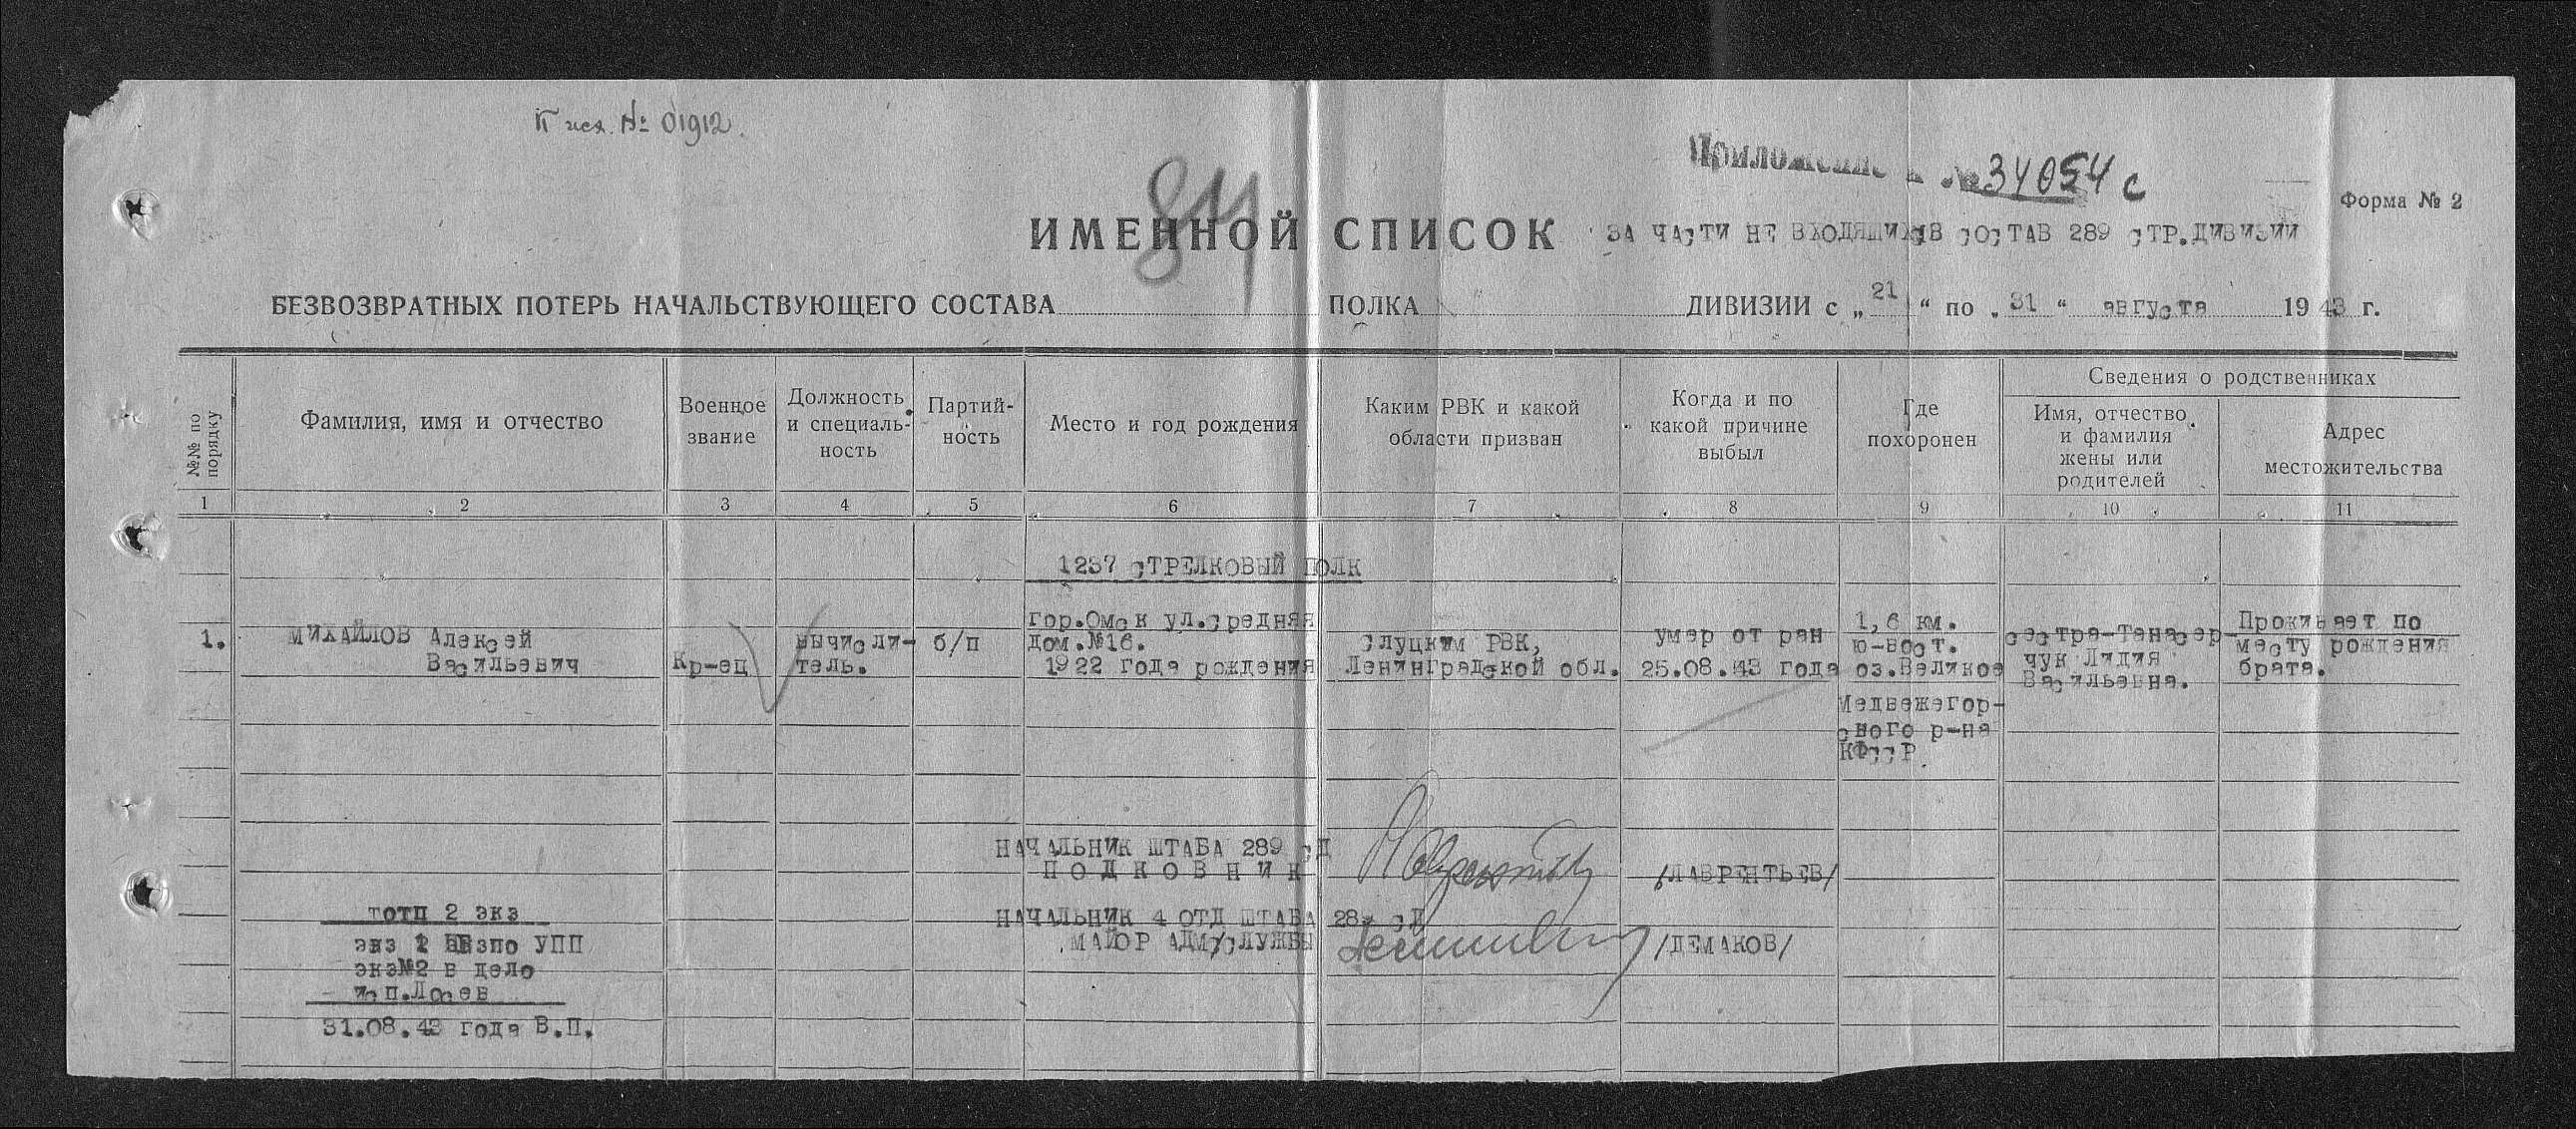 К исх. № 01912.
Приложение к № 34054 с
84
Форма № 2
ИМЕННОЙ СПИСОК ЗА ЧАСТИ НЕ ВХОДЯЩИХ В СОСТАВ 289 СТР.ДИВИЗИИ
БЕЗВОЗВРАТНЫХ ПОТЕРЬ НАЧАЛЬСТВУЮЩЕГО СОСТАВА ПОЛКА ДИВИЗИИ с „21“ по „31“ августа 1943 г.
№№ по порядку
Фамилия, имя и отчество
Военное
звание
Должность
и специаль-
ность
Партий-
ность
Место и год рождения
Каким РВК и какой
области призван
Когда и по
какой причине
выбыл
Где
похоронен
Сведения о родственниках
Имя, отчество
и фамилия
жены или
родителей
Адрес
местожительства
1 2 3 4 5 6 7 8 9 10 11
1237 СТРЕЛКОВЫЙ ПОЛК
1.
МИХАЙЛОВ Алексей
Васильевич
Кр-ец
вычисли-
тель.
б/п
гор.Омск ул.средняя
дом.№16.
1922 года рождения
Слуцким РВК,
Ленинградской обл.
умер от ран
25.08.43 года
1,6 км.
ю-вост.
оз.Великое
Медвежегор-
ского р-на
КФССР.
сестра-Танасер-
чук Лидия
Васильевна.
Проживает по
месту рождения
брата.
НАЧАЛЬНИК ШТАБА 289 СД
ПОДКОВНИК
/ЛАВРЕНТЬЕВ/
НАЧАЛЬНИК 4 ОТД ШТАБА 289 СД
МАЙОР АДМ/СЛУЖБЫ
/ДЕМАКОВ/
тотп 2 экз
экз 1 УПП
экз№2 в дело
исп.Лосев
31.08.43 года В.П.